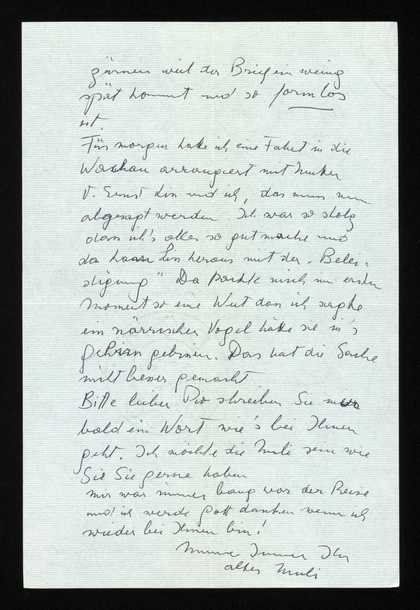 zürnen weil der Brief ein wenig
spät kommt und so formlos
ist.
Für morgen habe ich eine Fahrt in die
Wachau arrangiert mit
V. Ernst Lin und ich, das muss nun
abgesagt werden. Ich war so stolz
dass ich's alles so gut mache und
da kam Lin heraus mit der „Beläs-
tigung" Da packte mich im ersten
Moment so eine Wut dass ich sagte
ein närrischer Vogel hätte sie in's
Gehirn gebissen. Das hat die Sache
nicht besser gemacht
Bitte lieber schreiben Sie mir
bald ein Wort wie's bei Ihnen
geht. Ich möchte die sein wie
Sie Sie gerne haben
mir war immer bang vor der Reise
und ich werde Gott danken wenn ich
wieder bei Ihnen bin!
Immer Ihr
alter